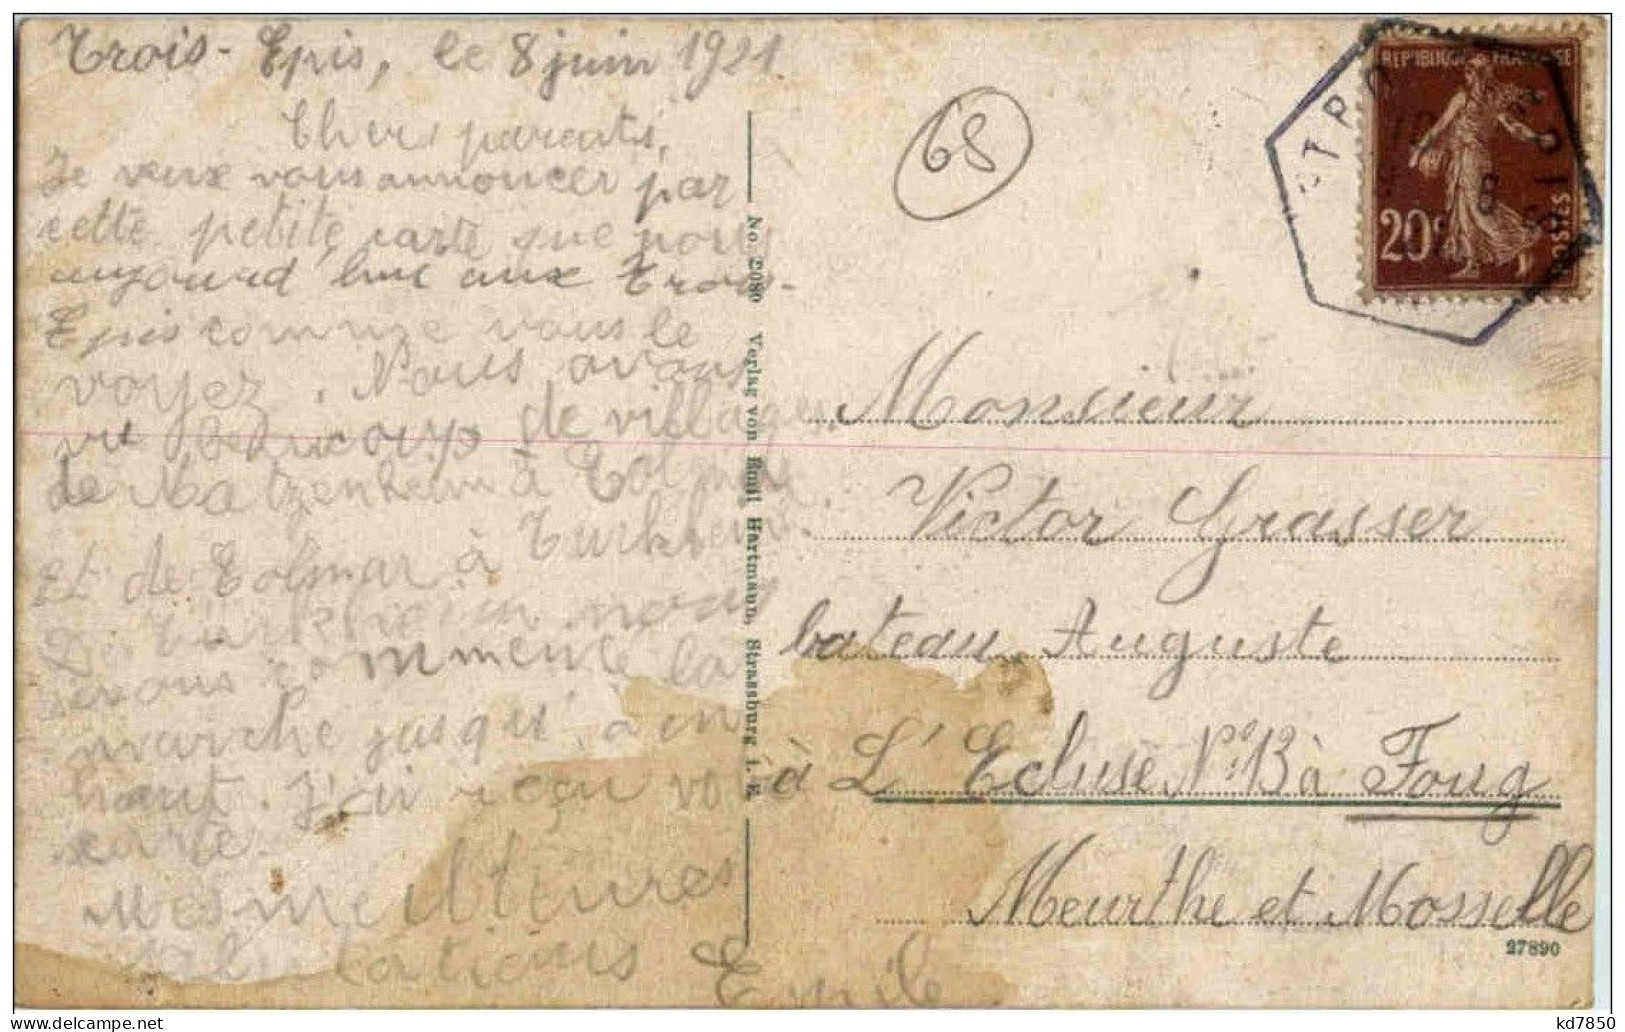 Trois-Epis, le 8 juin 1921
Chers parents,
Je veux vous annoncer par
cette petite carte que nous
aujourd'hui aux Trois-
Epis comme vous le
voyez. Nous avons
vu beaucoup de villages
de Matzenheim à Colmar
Et de Colmar à Turkheim.
De Turkheim nous
avons commencé la
marche jusqu'à en
haut. J'ai reçu votre
carte.
Mes meilleures
Salutations
Emile
68
No. 2080 Verlag von Emil Hartmann, Strassburg i. E.
REPUBLIQUE FRANÇAISE
20c
POSTES
Monsieur
Victor Grasser
bateau Auguste
à L'Ecluse No. 13 à Foug
Meurthe et Mosselle
27890
kd7850